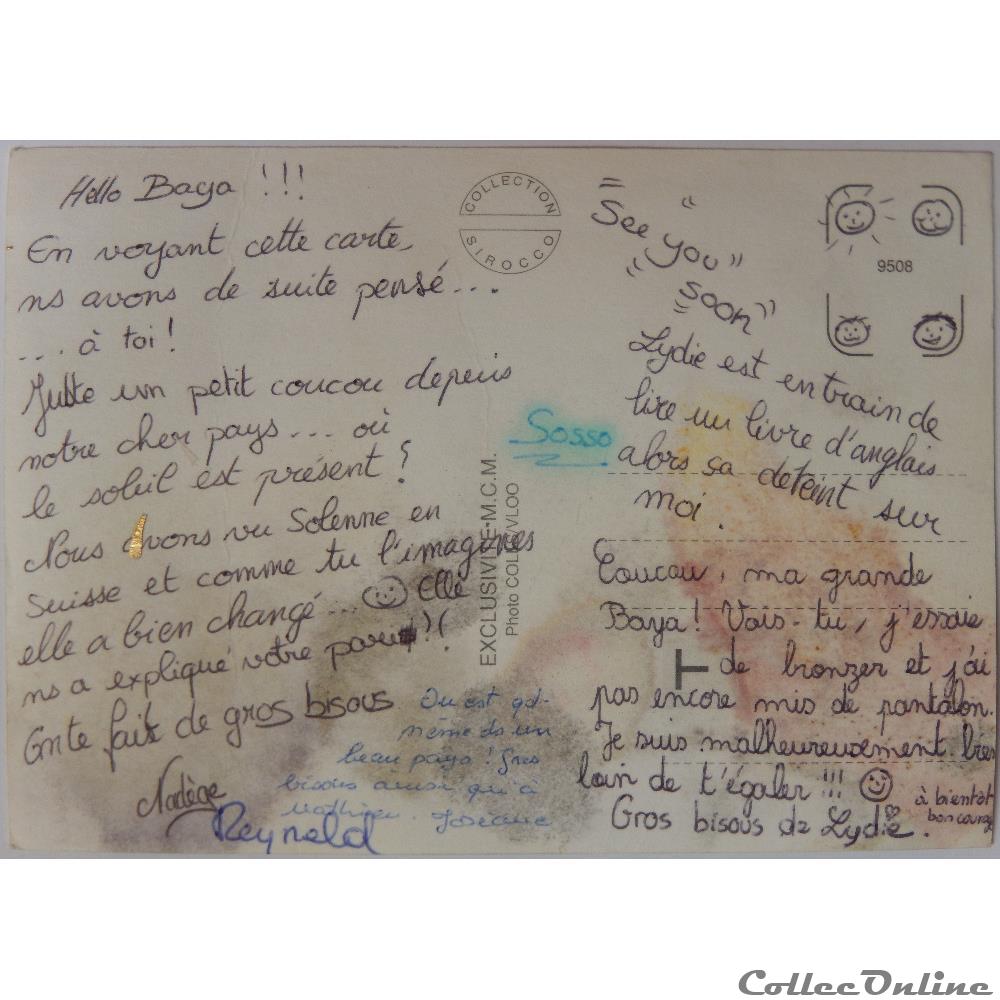 Hello Baya !!!
En voyant cette carte
ns avons de suite pensé...
... à toi !
Juste un petit coucou depuis
notre cher pays... où
le soleil est présent ?
Nous avons vu Solenne en
Suisse et comme tu l'imagines
elle a bien changé... Elle
ns a expliqué votre !
On te fait de gros bisous
Nadège
Reynald
On est qd-
même ds un
beau pays ! Gros
bisous ainsi qu'à
Mathieu. Joseane
COLLECTION
SIROCCO
EXCLUSIVITE-M.C.M.
Photo COLIN/VLOO
Sosso
9508
"See you"
"soon"
Lydie est en train de
lire un livre d'anglais
alors sa deteint sur
moi.
Coucou, ma grande
Baya ! Vois-tu, j'essaie
de bronzer et j'ai
pas encore mis de pantalon.
Je suis malheureusement très
loin de t'égaler !!!
Gros bisous de Lydie.
à bientôt
bon courage
CollecOnline